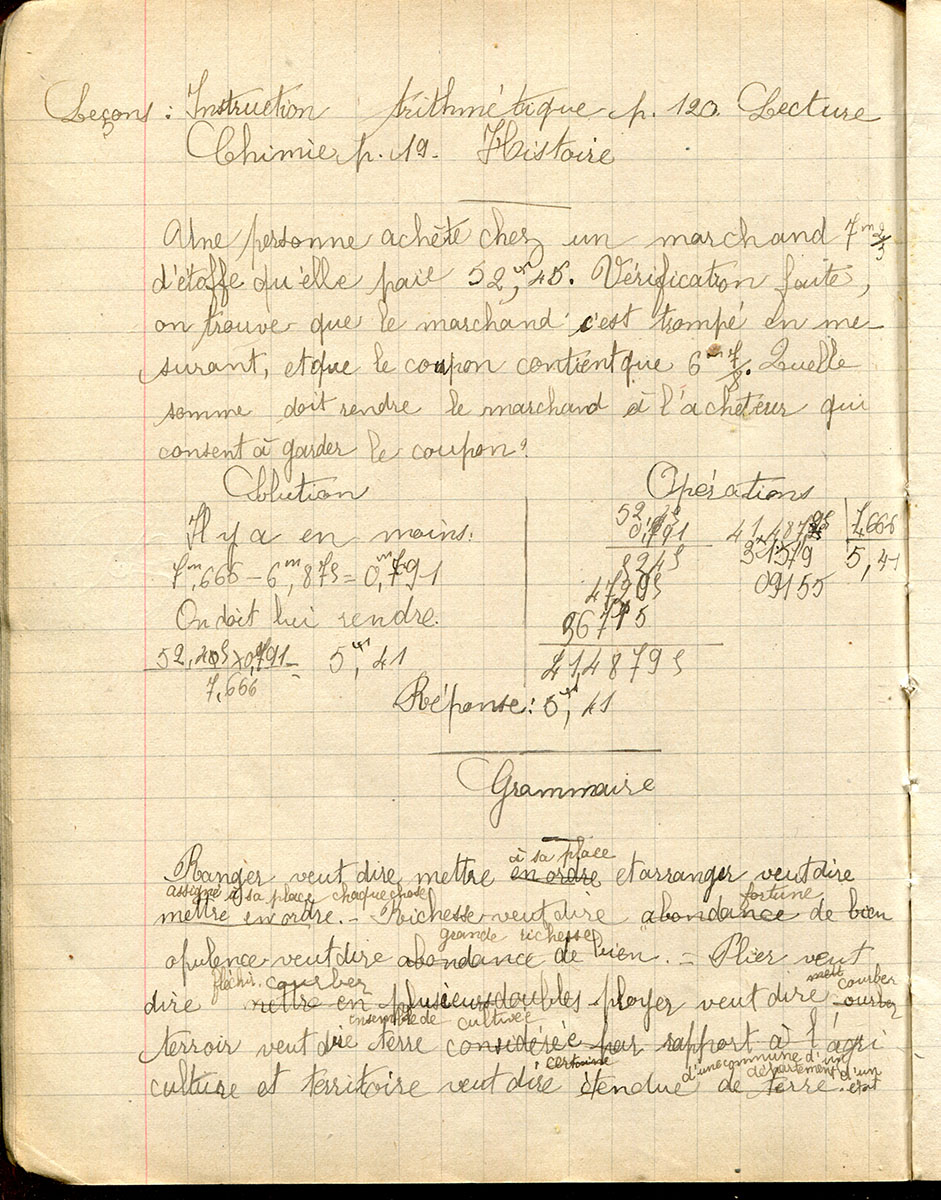 Leçons : Instruction Arithmétique p. 120. Lecture
Chimie p. 19. Histoire
Une personne achète chez un marchand 7 m 2/3
d'étoffe qu'elle paie 52,45. Vérification faite,
on trouve que le marchand c'est trompé en me-
surant, et que le coupon contient que 6 m 7/8. Quelle
somme doit rendre le marchand à l'acheteur qui
consent à garder le coupon?
Solution
Opérations
Il y a en moins:
7 m,666 - 6 m,875 = 0 m,791
On doit lui rendre.
52,45 x 0,791 = 5,41
7,666
52,45
0,791
5245
47205
36715
41,48795
41,48795 7,666
31579 5,41
09155
Réponse: 5,41
Grammaire
à sa place
Ranger veut dire mettre en ordre et arranger veut dire
assigné à sa place chaque chose fortune
mettre en ordre. - Richesse veut dire abondance de bien
grande richesse
opulence veut dire abondance de bien. = Plier veut
fléchir. courber ment courber
dire mettre en plusieurs doubles ployer veut dire courber
ensemble de cultivée
terroir veut dire terre considérée par rapport à l'agri
certaine d'une commune d'un département d'un état
culture et territoire veut dire étendue de terre.